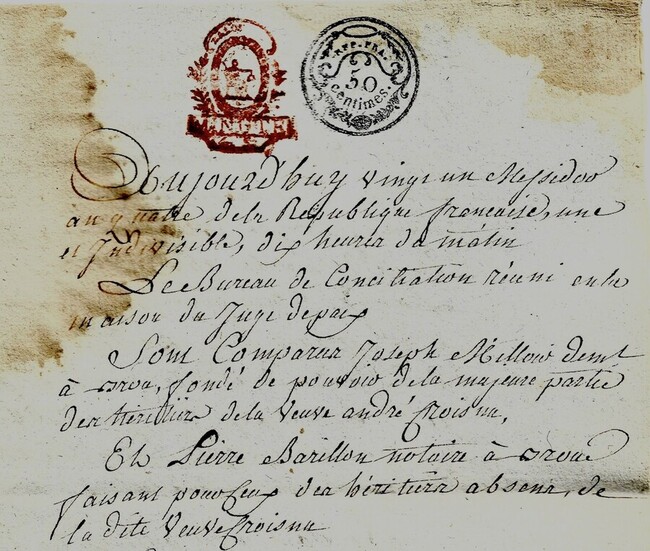 REP. FRA.
50
centimes.
Aujourd'huy vingt un Messidor
an quatre de la Republique francaise, une
et Indivisible, dix heures du matin
Le Bureau de Conciliation réuni en la
maison du Juge de paix
Sont Comparus Joseph Millow demt
à Brou, fondé de pouvoir de la majeure partie
des héritiers de la veuve andré Croisnu,
Et Pierre Barillon notaire à Broue
faisant pour Ceux des héritiers absens, de
la dite veuve Croisnu